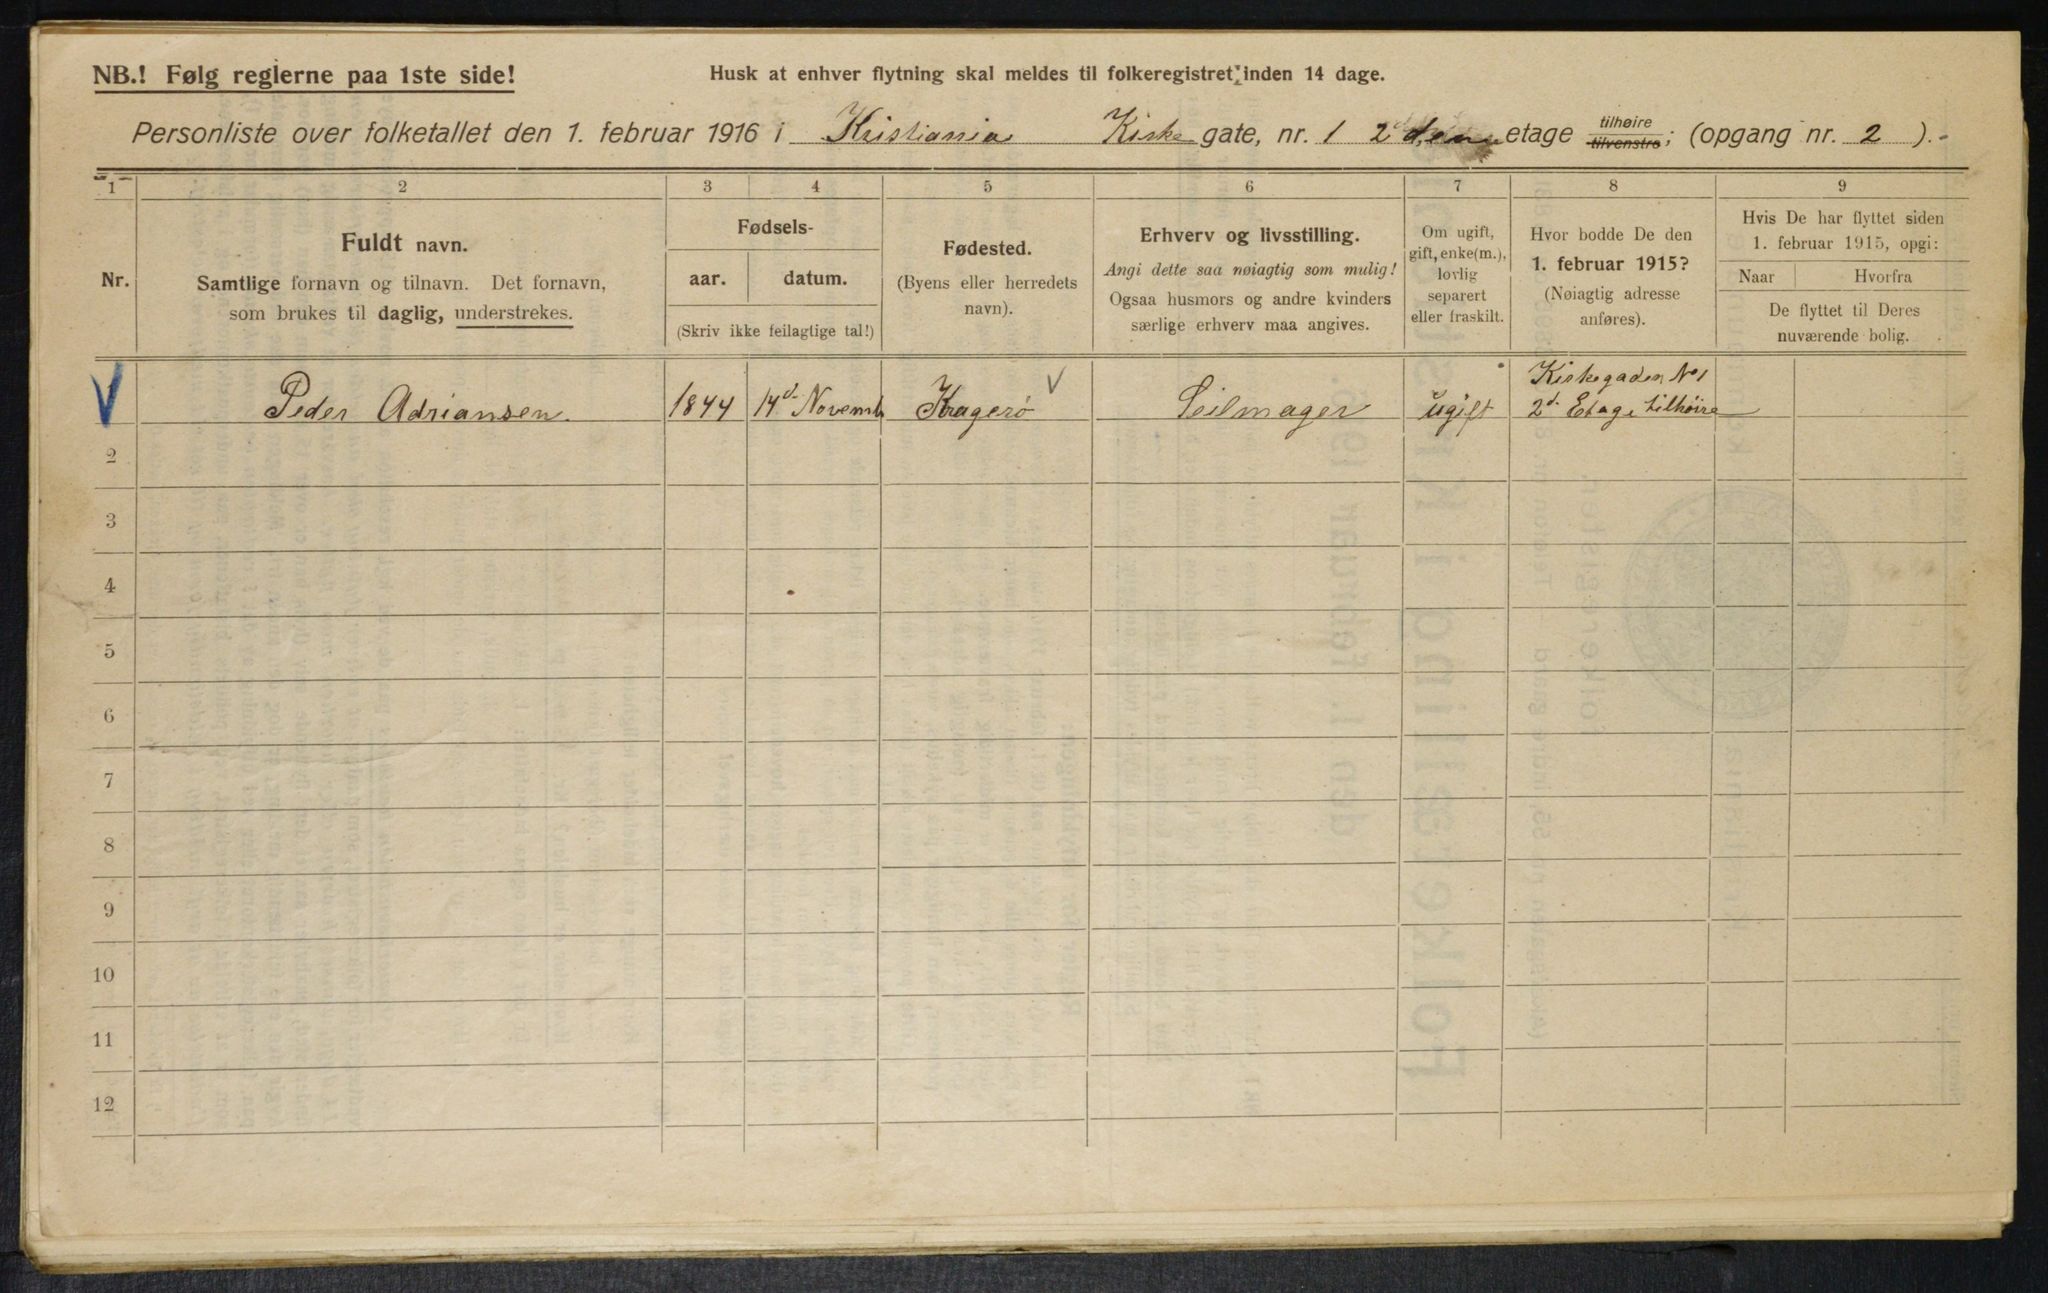 NB.! Følg reglerne paa 1ste side!
Husk at enhver flytning skal meldes til folkeregistret inden 14 dage.
Personliste over folketallet den 1. februar 1916 i Kristiania Kiske gate, nr. 1 2den etage tilhøire tilvenstre; (opgang nr. 2).
1 2 3 4 5 6 7 8 9
Nr.
Fuldt navn.
Samtlige fornavn og tilnavn. Det fornavn,
som brukes til daglig, understrekes.
Fødsels-
aar. datum.
(Skriv ikke feilagtige tal!)
Fødested.
(Byens eller herredets
navn).
Erhverv og livsstilling.
Angi dette saa nøiagtig som mulig!
Ogsaa husmors og andre kvinders
særlige erhverv maa angives.
Om ugift,
gift, enke(m.),
lovlig
separert
eller fraskilt.
Hvor bodde De den
1. februar 1915?
(Nøiagtig adresse
anføres).
Hvis De har flyttet siden
1. februar 1915, opgi:
Naar Hvorfra
De flyttet til Deres
nuværende bolig.
Peder Adriansen. 1844 14d. Novemb Kragerø Seilmager ugift Kiskegaden No 1
2d. Etage tilhøire
2
3
4
5
6
7
8
9
10
11
12